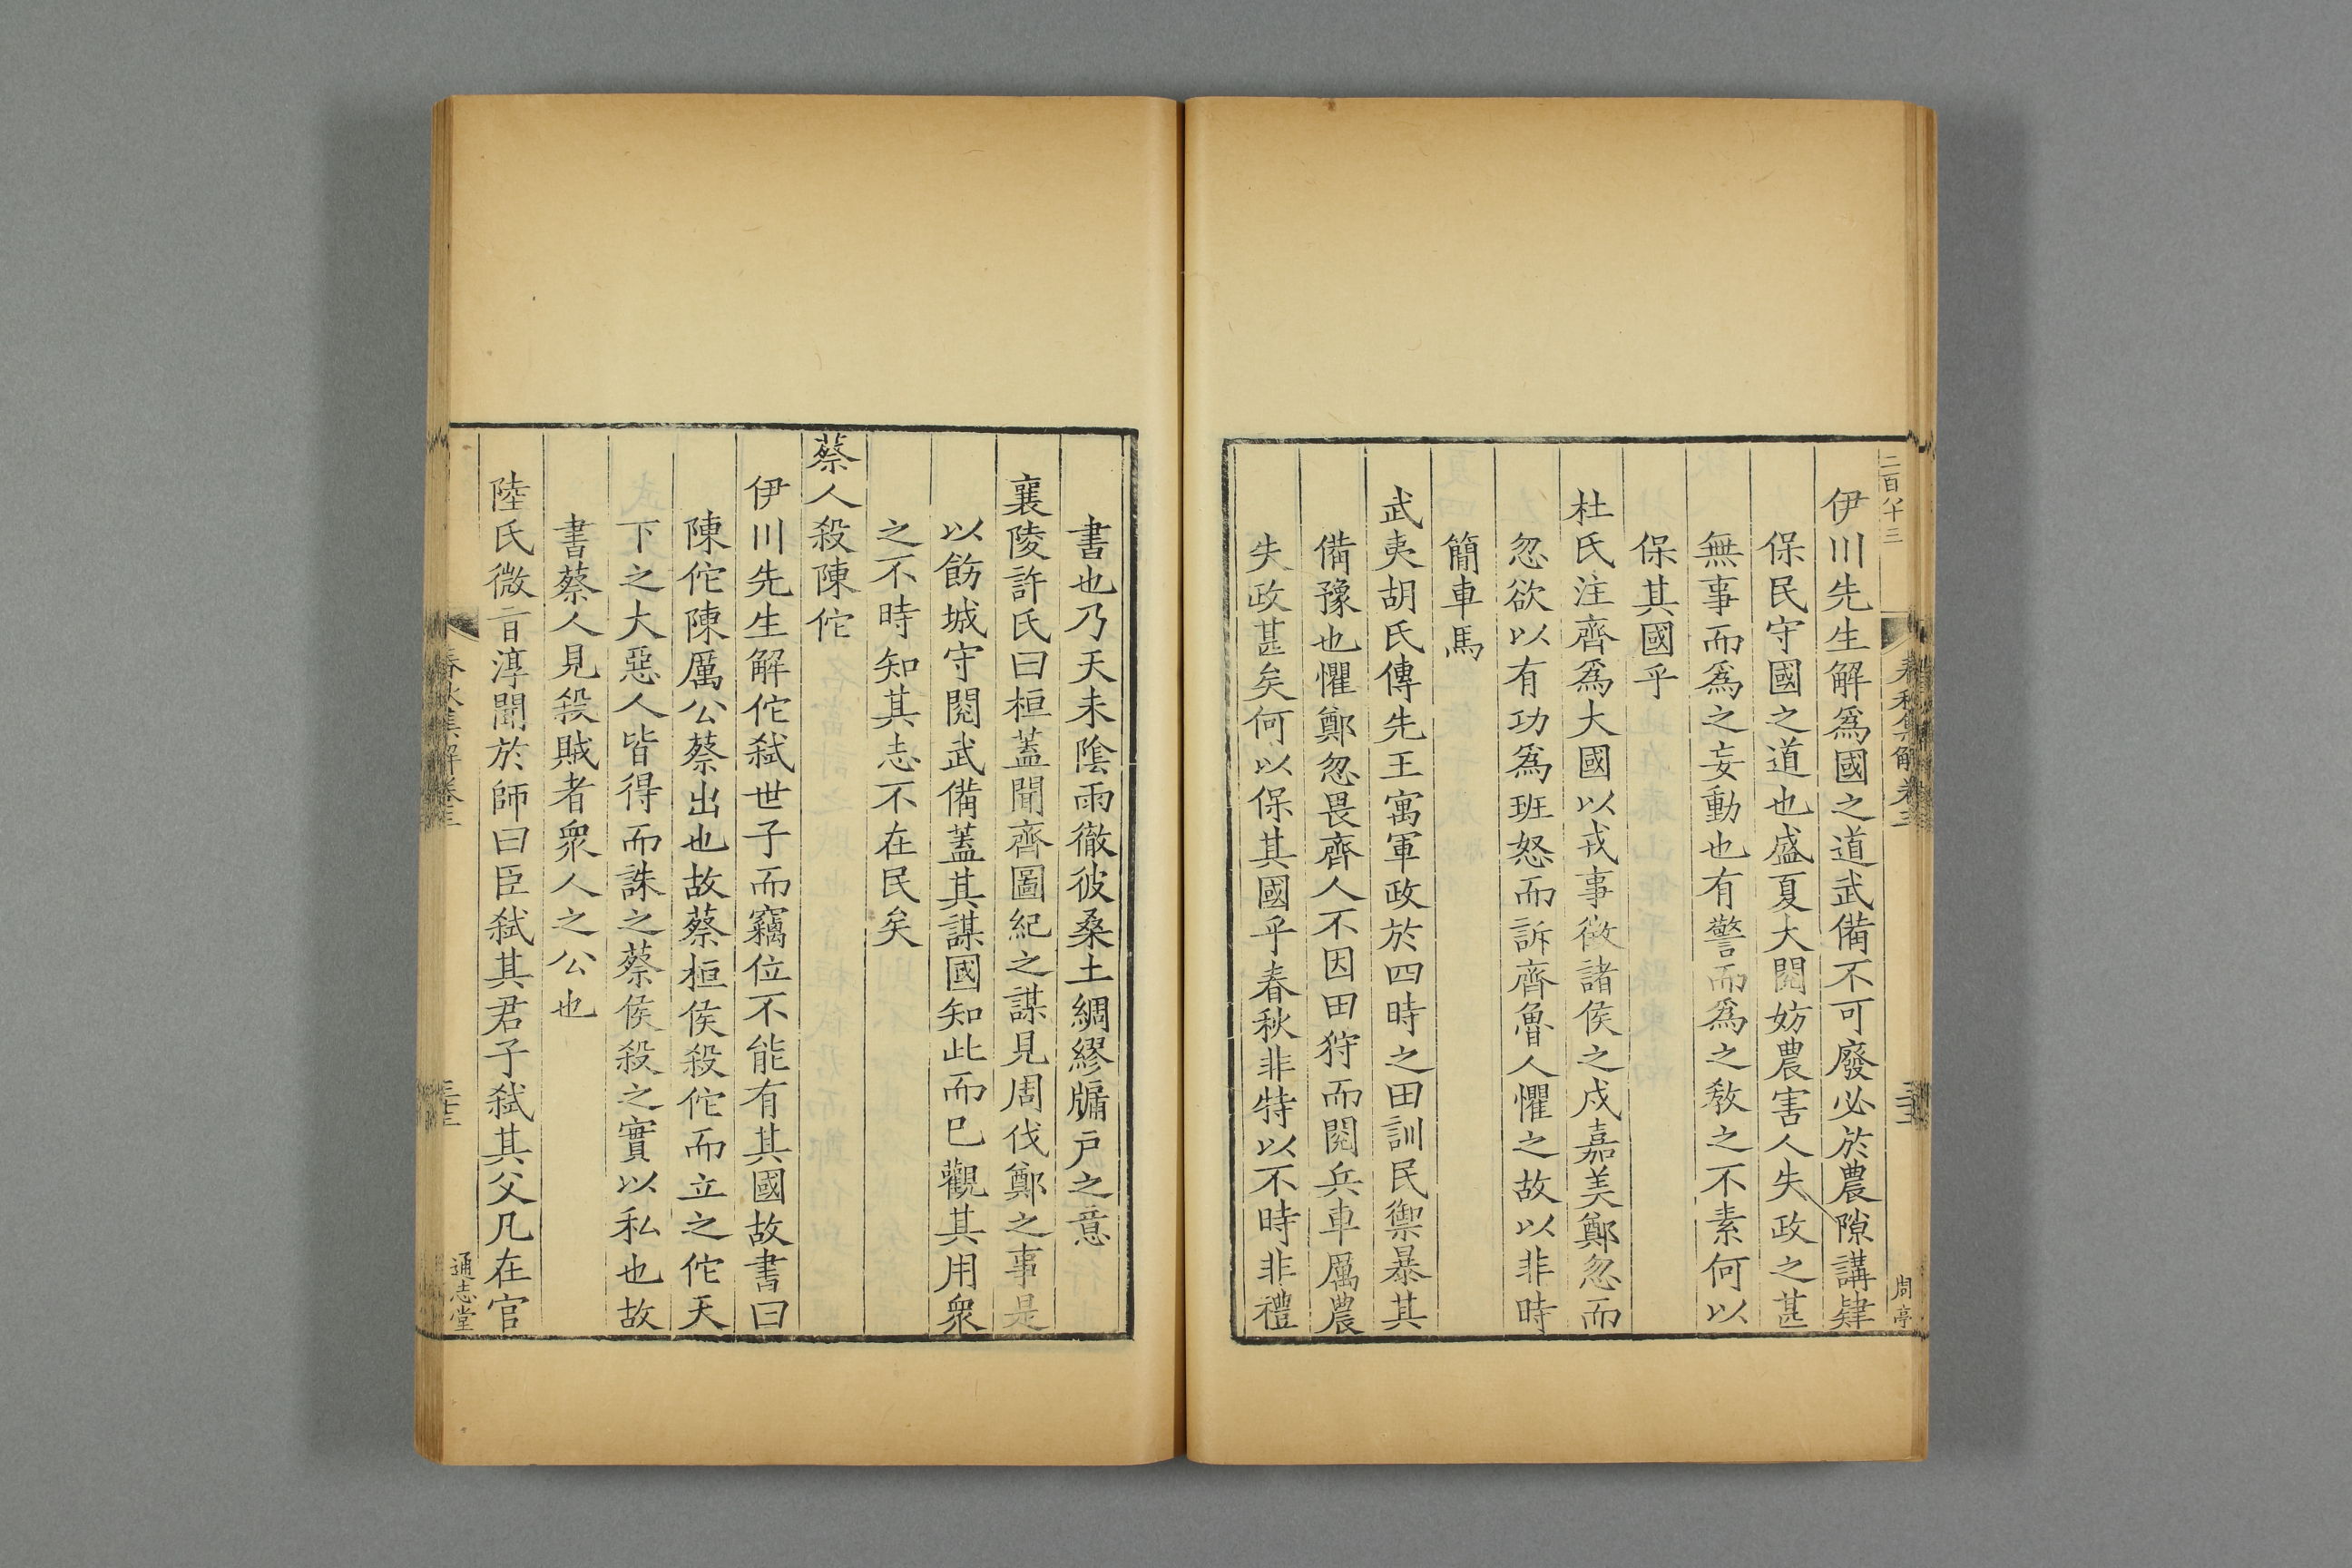 二百八十三
春秋集解卷三
周亭
伊川先生解爲國之道武備不可廢必於農隙講肄
保民守國之道也盛夏大閱妨農害人失政之甚
無事而爲之妄動也有警而爲之教之不素何以
保其國乎
杜氏注齊爲大國以戎事徵諸侯之戍嘉美鄭忽而
忽欲以有功爲班怒而訴齊魯人懼之故以非時
簡車馬
武夷胡氏傳先王寓軍政於四時之田訓民禦暴其
備豫也懼鄭忽畏齊人不因田狩而閱兵車厲農
失政甚矣何以保其國乎春秋非特以不時非禮
書也乃天未陰雨徹彼桑土綢繆牖戸之意
襄陵許氏曰桓蓋聞齊圖紀之謀見周伐鄭之事是
以飭城守閱武備蓋其謀國知此而已觀其用衆
之不時知其志不在民矣
蔡人殺陳佗
伊川先生解佗弑世子而竊位不能有其國故書曰
陳佗陳厲公蔡出也故蔡桓侯殺佗而立之佗天
下之大惡人皆得而誅之蔡侯殺之實以私也故
書蔡人見殺賊者衆人之公也
陸氏微旨淳聞於師曰臣弑其君子弑其父凡在官
春秋集解卷三
通志堂